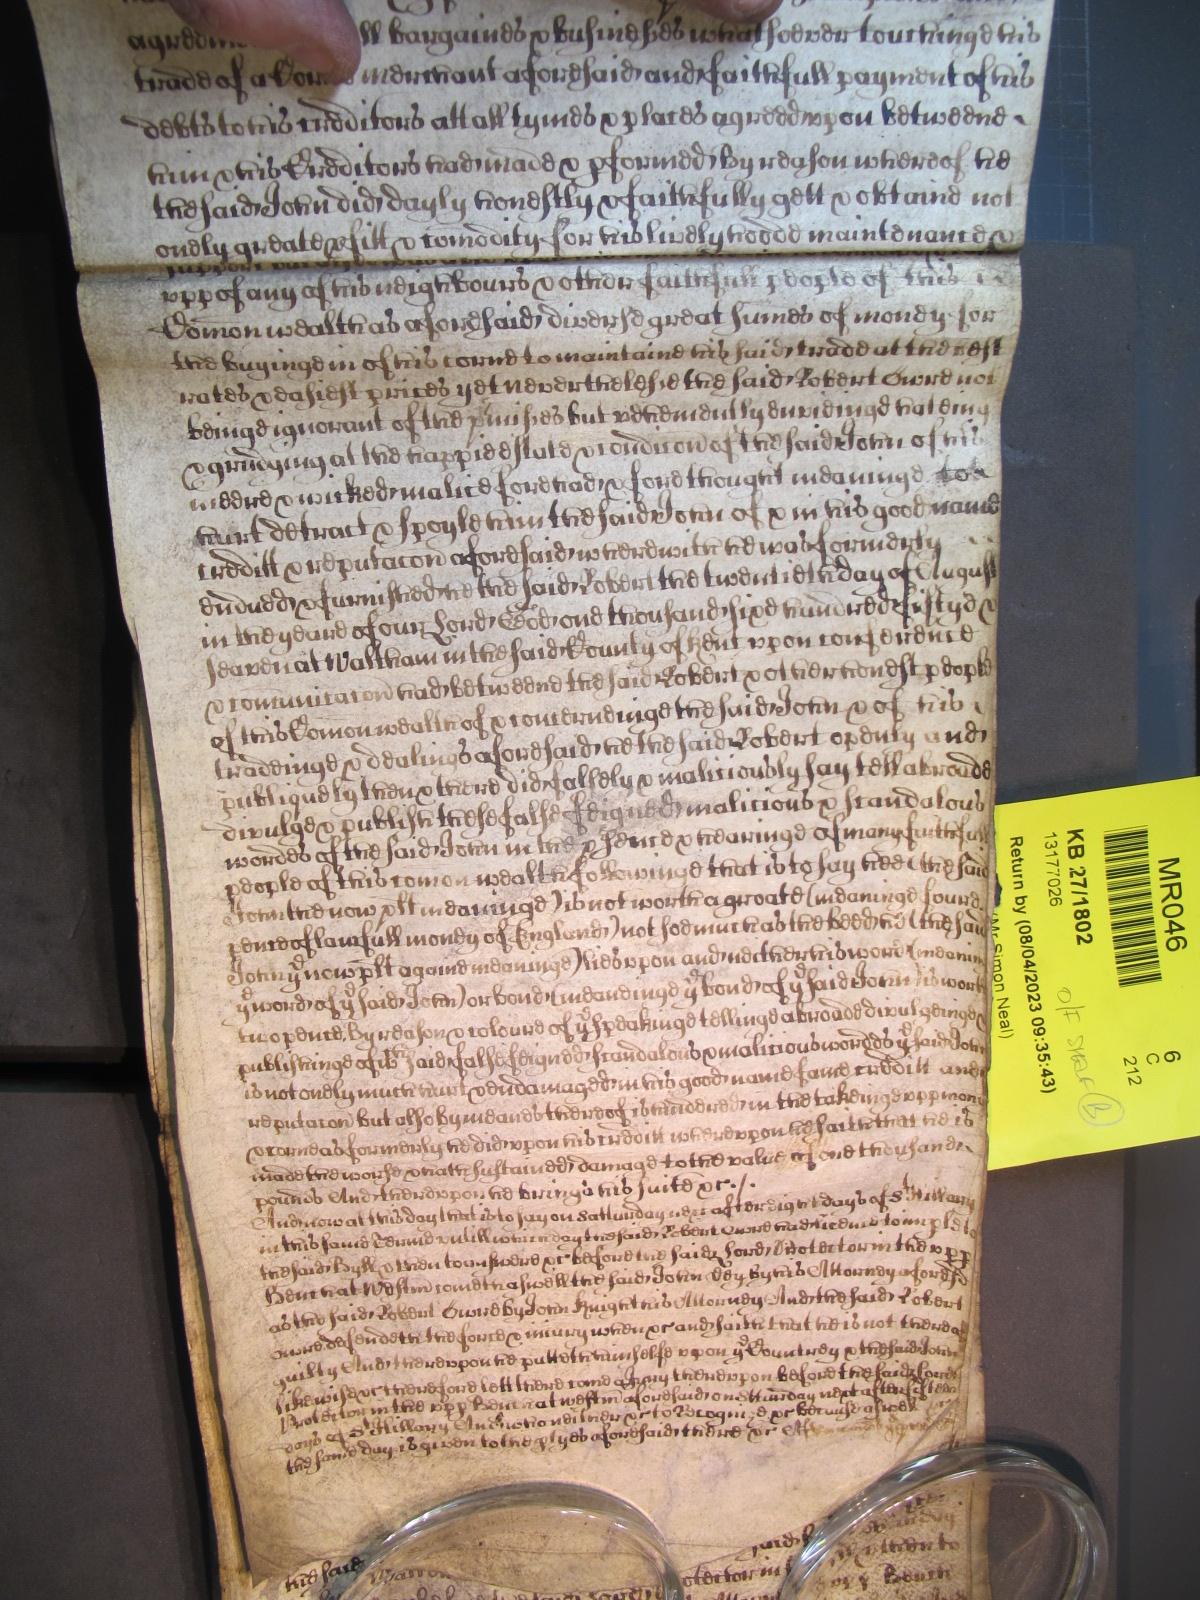 agreeme ll bargaines & businesses whatsoever touchinge his
trade of a Corne merchant aforesaid and faithfull payment of his
debts to his Creditors att all tymes & places agreed upon betweene
him & his Creditors had made & pformed By reason whereof he
the said John did dayly honestly & faithfully gett & obtaine not
onely greate pfitt & comodity for his livelyhood maintenance &
support
upp of any of his neightbours & other faithfull people of this
Comon wealth as aforesaid diverse great sumes of money for
the buyinge in of his corne to maintaine his said trade at the best
rates & easiest prices yet neverthelesse the said Robert Owre not
beinge ignorant of the pmisses but vehemently envidinge hateing
& grudging at the happie estate & condicon of the said John of his
meere & wicked malice forehad & forethought meaninge to
hurt detract & spoyle him the said John of & in his good name
creditt & reputacon aforesaid wherewith he was formerly
endued & furnished he the said Robert the twentieth day of August
in the yeare of our Lord God one thousand sixe hundred fiftye &
seaven at Waltham in the said County of Kent upon conference
& comunicacon had betweene the said Robert & other honest people
of this Comon wealth of & concerneinge the said John & of his
tradeinge & dealings aforesaid he the said Robert openly and
publiquely then & there did falsely & maliciously say tell abroade
divulge & publish these false feigned malicious & scandalous
wordes of the said John in the psence & hearinge of many faithfull
people of this comon wealth followinge that is to say hee (the said
John the now plt meaninge) is not worth a groate (meaninge foure
pence of lawfull money of England) not soe much as the bedd he (the said
John ye now plt againe meaninge) lies upon and neither his word (meaning
ye word of ye said John) or bond (meaninge ye bond of ye said John) is worth
two pence, By reason & coloure of ye speakinge tellinge abroade divulgeinge &
publishinge of wch said false feigned scandalous & malicious wordes ye said John
is not onely much hurt & endamaged in his good name fame creditt and
reputacon but also by meanes thereof is hindered in the takeinge upp mony
& corne as formerly he did upon his creditt whereupon he saith that he is
made the worse & hath sustained damage to the value of one thousand
pounds And thereupon he brings his suite &c.
And now at this day that is to say on Saturday next after eight days of St Hillary
in this same Terme untill which day the said Robert Owre had licence to imple to
the said Byll & then to answere &c before the said Lord Protector in the upp
Bench at Westm cometh aswell the said John Dey by his Attorney aforesd
as the said Robert Owre by John Knight his Attorney And the said Robert
Owre defendeth the force & injury when &c and saith that he is not thereof
guilty And thereupon he putteth himselfe upon ye Countrey & the said John
likewise &c therefore lett there come a Jury thereupon before the said Lord
Protector in the upp Bench at Westm aforesaid on Saturday next after fifteen
days of St Hillary And who neither &c to Recognize &c because aswell
the same day is given to the ptyes aforesaid there &c
the said
MR046
6
C
212
KB 27/1802
13177026
O/F Shelf (B)
Return by (08/04/2023 09:35:43)
(Mr Simon Neal)